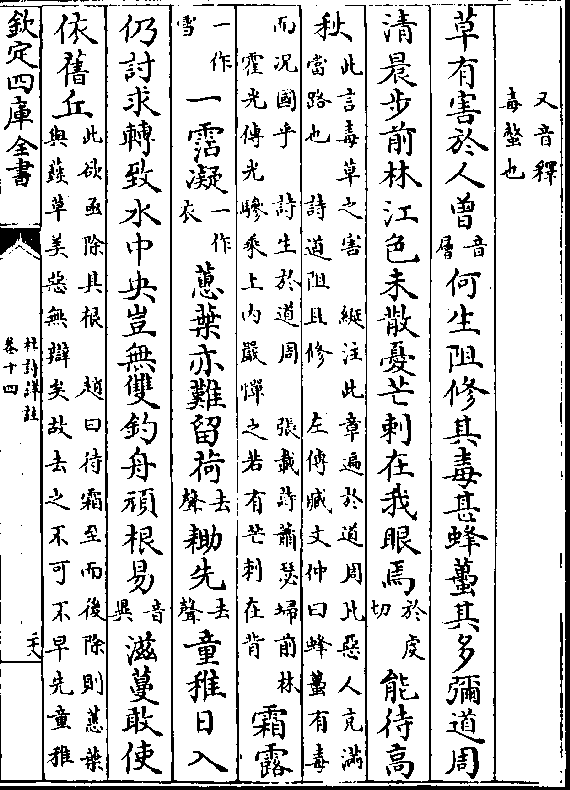 又音釋
毒螫也
草有害於人曾音層何生阻修其毒甚蜂蠆其多彌道周
清晨步前林江色未散憂芒刺在我眼焉於虔切能待高
秋
此言毒草之害 縱注此章遍於道周比惡人充滿
當路也 詩道阻且修 左傳臧文仲曰蜂蠆有毒
而況國乎 詩生於道周 張載詩蕭瑟埽前林
霍光傳光驂乘上内嚴憚之若有芒刺在背
霜露
一作雪一霑凝一作衣蕙葉亦難留荷去聲耡先去聲童稚日入
仍討求轉致水中央豈無雙釣舟頑根易音異滋蔓敢使
依舊丘
此欲亟除具根 趙曰待霜至而後除則蕙葉
與草美惡無辯矣故去之不可不早先童稚
欽定四庫全書
杜詩詳註
卷十四